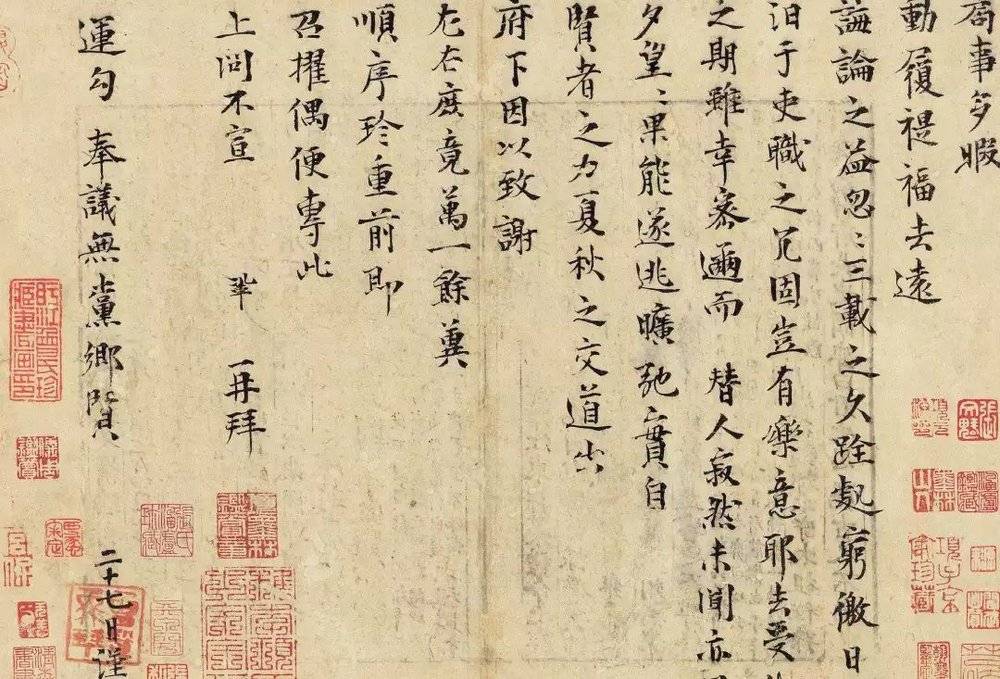 局事多暇
動履禔福去遠
誨論之益忽〻三載之久跧處窮徼日
汨于吏職之冗固豈有樂意耶去受
之期雖幸密邇而 替人寂然未聞亦
夕望〻果能遂逃曠弛實自
賢者之力夏秋之交道出
府下因以致謝
左右庶竟萬一餘冀
順序珍重前即
召擢偶便專此
上問不宣 鞏 再拜
運勾 奉議無黨鄉賢 二十七日謹
項子京家珍藏